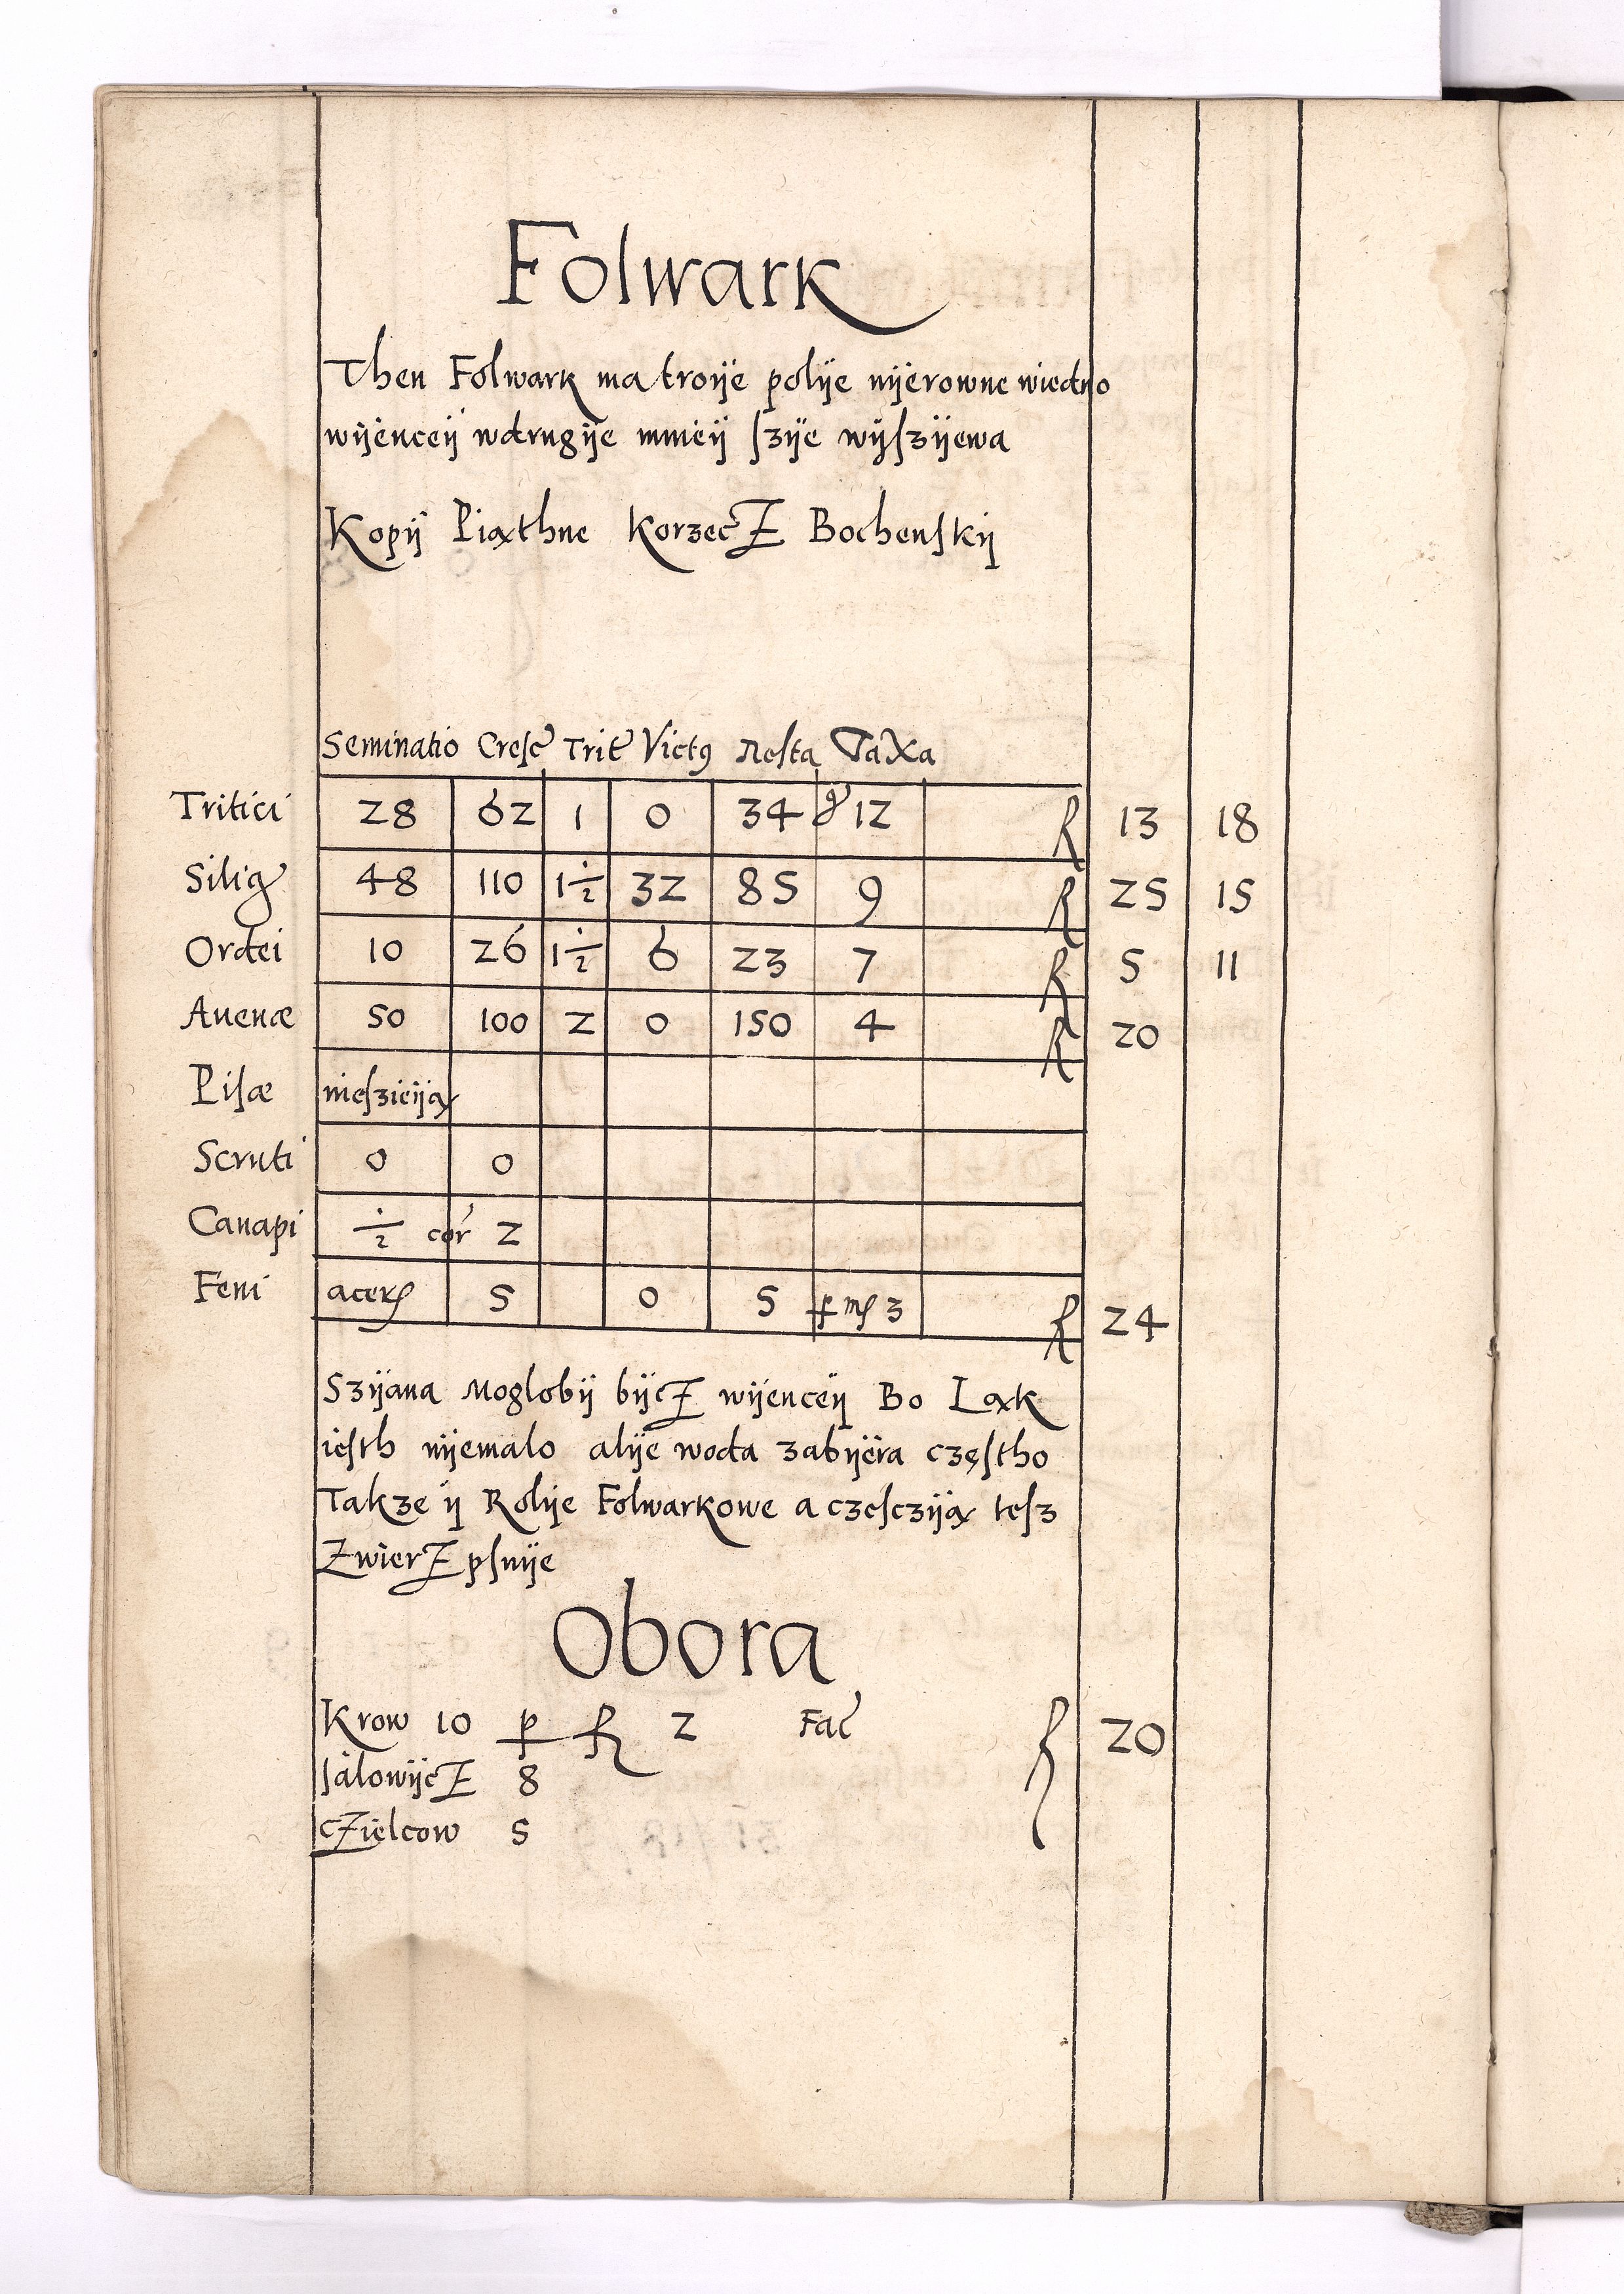 Folwark
Then Folwark ma troÿe polÿe nÿerowne wiedno
wÿenceÿ wdrugÿe mnieÿ ſzÿe wÿſzÿewa
Kopÿ Piąthne KorzecZ Bochenſkÿ
Seminatio Creſc Trit Victꝰ Reſta Taxa
Tritici 28 62 1 0 34 gͬ 12 ƒ 13 18
Silig 48 110 1½ 32 85 9 ƒ 25 15
Ordei 10 26 1½ 6 23 7 ƒ 5 11
Auenæ 50 100 2 0 150 4 ƒ 20
Piſæ nieſzieÿą
Scruti 0 0
Canapi ½ cor 2
Feni acerꝭ 5 0 5 ꝑ mꝭ 3 ƒ 24
Szÿana Moglobÿ bÿcZ wÿenceÿ Bo Ląk
ieſth nÿemalo alÿe woda zabÿera częſtho
Takze ÿ Rolÿe Folwarkowe a czeſczÿą teſz
ZwierZ pſuÿe
Obora
Krow 10 ꝑ ƒ 2 Fac ƒ 20
JalowÿcZ 8
cZielcow 5